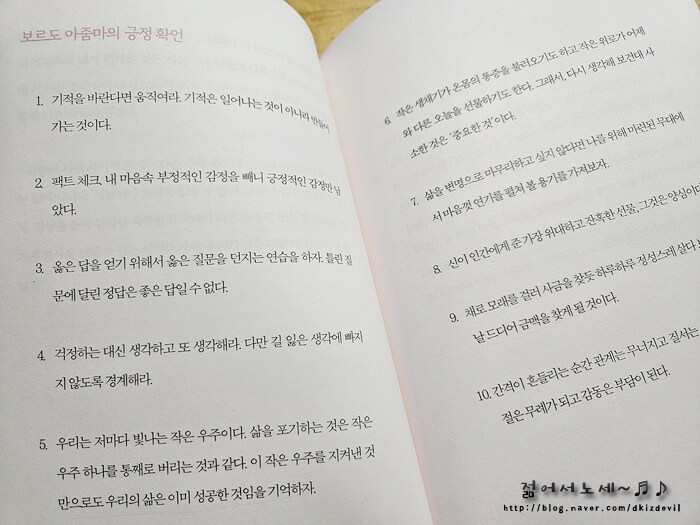 보르도 아줌마의 긍정 확언
1. 기적을 바란다면 움직여라. 기적은 일어나는 것이 아니라 만들어
가는 것이다.
2. 팩트 체크. 내 마음속 부정적인 감정을 빼니 긍정적인 감정만 남
았다.
3. 옳은 답을 얻기 위해서 옳은 질문을 던지는 연습을 하자. 틀린 질
문에 달린 정답은 좋은 답일 수 없다.
4. 걱정하는 대신 생각하고 또 생각해라. 다만 길 잃은 생각에 빠지
지 않도록 경계해라.
5. 우리는 저마다 빛나는 작은 우주이다. 삶을 포기하는 것은 작은
우주 하나를 통째로 버리는 것과 같다. 이 작은 우주를 지켜낸 것
만으로도 우리의 삶은 이미 성공한 것임을 기억하자.
6. 작은 생채기가 온몸의 통증을 불러오기도 하고 작은 위로가 어제
와 다른 오늘을 선물하기도 한다. 그래서, 다시 생각해 보건대 사
소한 것은 '중요한 것'이다.
7. 삶을 변명으로 마무리하고 싶지 않다면 나를 위해 마련된 무대에
서 마음껏 연기를 펼쳐 볼 용기를 가져보자.
8. 신이 인간에게 준 가장 위대하고 잔혹한 선물, 그것은 양심이다
9. 채로 모래를 걸러 사금을 찾듯 하루하루 정성스레 살다
날 드디어 금맥을 찾게 될 것이다.
10. 간격이 흔들리는 순간 관계는 무너지고 질서는
절은 무례가 되고 감동은 부담이 된다.
젊어서노세~♬♪
http://blog.naver.com/dkizdevil